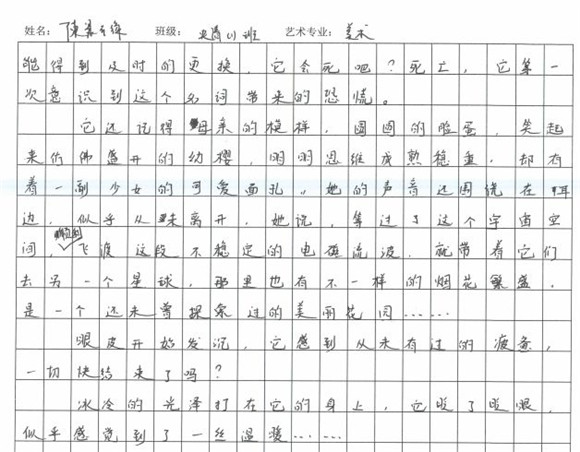 姓名： 陳 绎 班级： 艺术专业：美术
能得到及时的更换，它会死吧？死亡，它第一
次意识到这个名词带来的恐慌。
它还记得母亲的模样，圆圆的脸蛋，笑起
来仿佛盛开的幼樱，明明思维成熟稳重，却有
着一副少女的可爱面孔。她的声音还围绕在耳
边，似乎从未离开，她说，等过了这个宇宙空
间，飞渡这段不稳定的电磁流波，就带着它们
去另一个星球，那里也有不一样的烟花繁盛，
是一个还未曾探索过的美丽花园……
眼皮开始发沉，它感到从未有过的疲惫，
一切快结束了吗？
冰冷的光泽打在它的身上，它眨了眨眼，
似乎感觉到了一丝温暖……